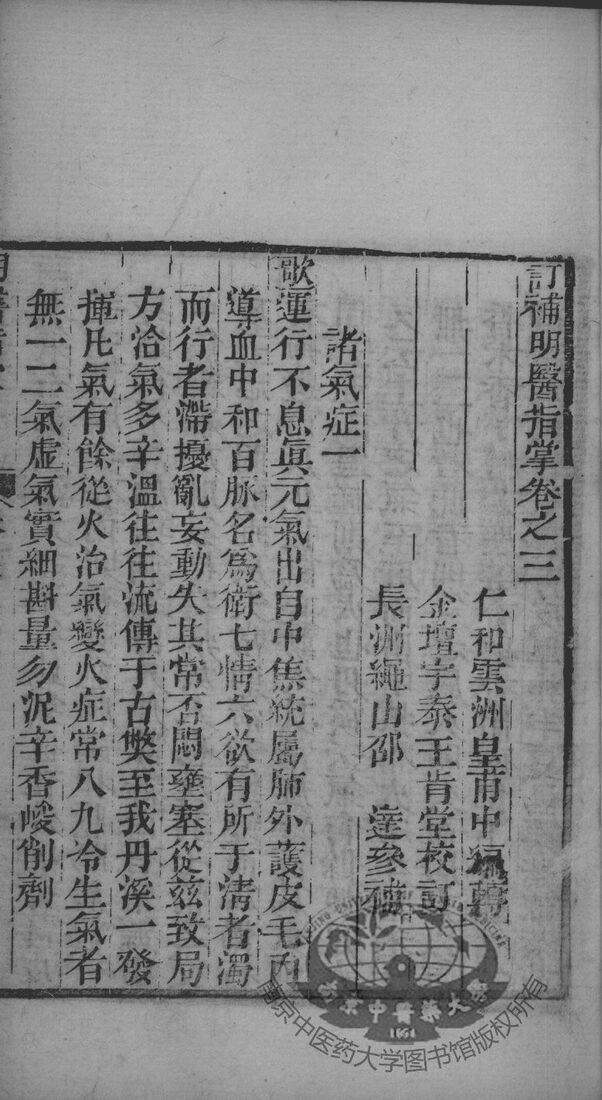 訂補明醫指掌卷之三
仁和雲洲皇甫中編輯
金壇宇泰王肯堂校訂
長洲繩山邵 達參補
諸氣症一
歌運行不息眞元氣出自中焦統屬肺外護皮毛內
導血中和百脉名爲衛七情六欲有所于清者濁
而行者滯擾亂妄動失其常否悶壅塞從兹致局
方治氣多辛溫往往流傳于古獘至我丹溪一發
揮凡氣有餘從火治氣變火症常八九冷生氣者
無一二氣虛氣實細斟量勿泥辛香峻削劑
南京中醫藥大學
1954
南京中医药大学图书馆版权所有